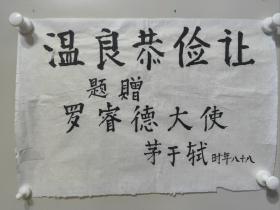 温良恭俭让
题赠
罗睿德大使
茅于轼 时年八十八